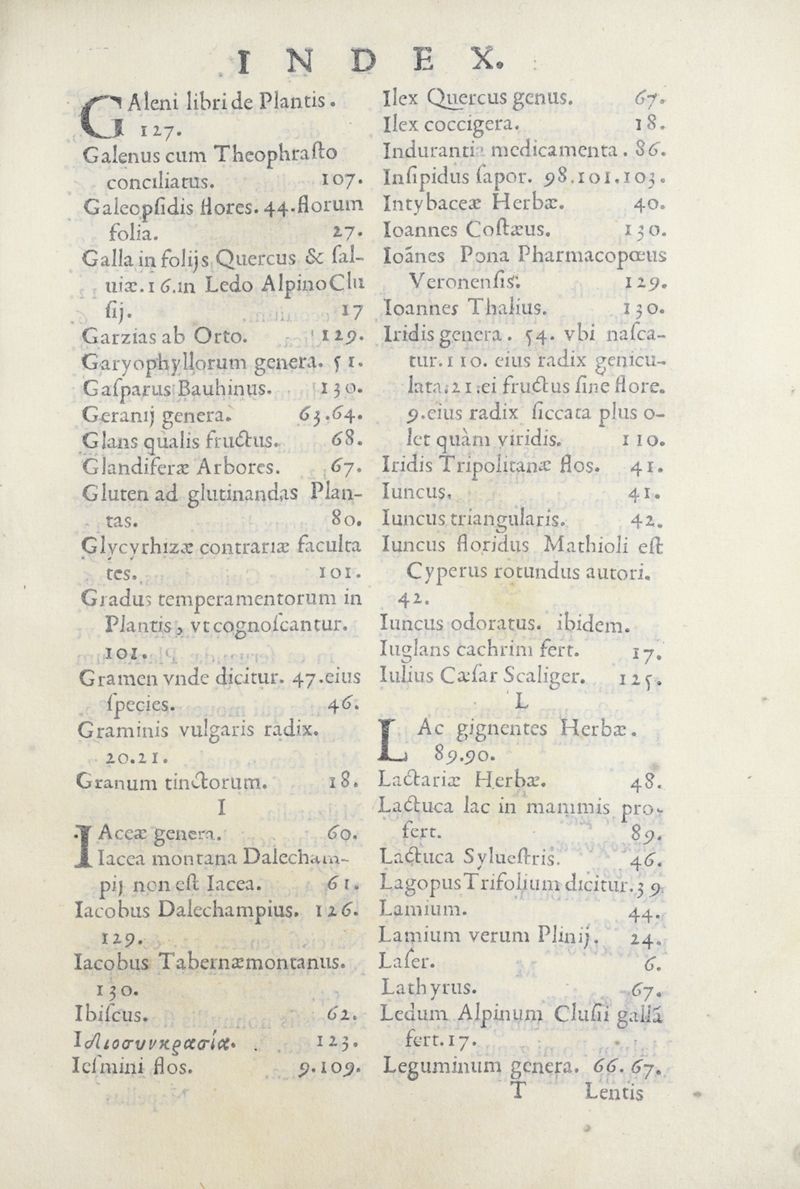 INDEX.
GAleni libri de Plantis.
127.
Galenus cum Theophraſto
conciliatus. 107.
Galeopſidis flores. 44. florum
folia. 27.
Galla in folijs Quercus & ſal-
uiæ. 16. in Ledo Alpino Clu
ſij. 17
Garzias ab Orto. 129.
Garyophyllorum genera. 51.
Gaſparus Bauhinus. 130.
Geranij genera. 63.64.
Glans qualis fructus. 68.
Glandiferæ Arbores. 67.
Gluten ad glutinandas Plan-
tas. 80.
Glycyrhizæ contrariæ faculta
tes. 101.
Gradus temperamentorum in
Plantis, vt cognoſcantur.
101.
Gramen vnde dicitur. 47. eius
ſpecies. 46.
Graminis vulgaris radix.
20.21.
Granum tinctorum. 18.
I
IAceæ genera. 60.
Iacea montana Dalecham-
pij non eſt Iacea. 61.
Iacobus Dalechampius. 126.
129.
Iacobus Tabernæmontanus.
130.
Ibiſcus. 62.
Iδιοσυνκρασία. 123.
Ieſmini flos. 9.109.
Ilex Quercus genus. 67.
Ilex coccigera. 18.
Indurantia medicamenta. 86.
Inſipidus ſapor. 98.101.103.
Intybaceæ Herbæ. 40.
Ioannes Coſtæus. 130.
Ioānes Pona Pharmacopœus
Veronenſis. 129.
Ioannes Thalius. 130.
Iridis genera. 54. vbi naſca-
tur. 110. eius radix genicu-
lata. 21. ei fructus ſine flore.
9. eius radix ſiccata plus o-
let quàm viridis. 110.
Iridis Tripolitanæ flos. 41.
Iuncus. 41.
Iuncus triangularis. 42.
Iuncus floridus Mathioli eſt
Cyperus rotundus autori.
42.
Iuncus odoratus. ibidem.
Iuglans cachrim fert. 17.
Iulius Cæſar Scaliger. 125.
L
LAc gignentes Herbæ.
89.90.
Lactariæ Herbæ. 48.
Lactuca lac in mammis pro-
fert. 89.
Lactuca Sylueſtris. 46.
Lagopus Trifolium dicitur. 39.
Lamium. 44.
Lamium verum Plinij. 24.
Laſer. 6.
Lathyrus. 67.
Ledum Alpinum Cluſii gallā
fert. 17.
Leguminum genera. 66. 67.
T Lentis